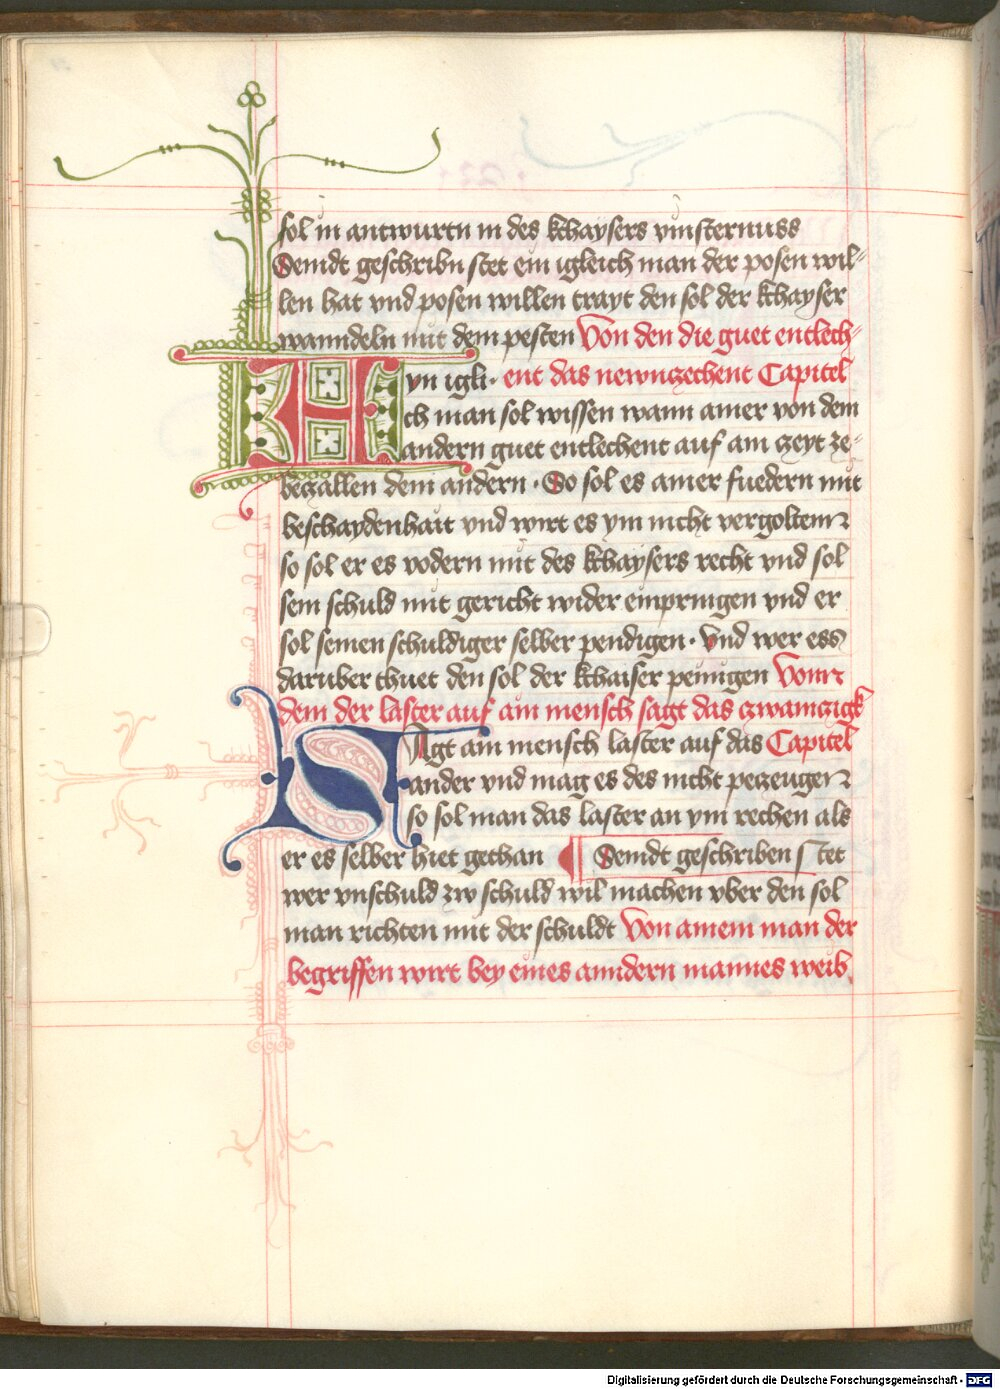 sol in antwurtn in des khaysers vinsternuss
Semdt geschribn stet ein igleich man der posen wil-
len hat vnd posen willen trayt den sol der khayser
wanndeln mit dem pesten Von den die guet entlech-
AYn igli- ent das newnzechent Capitel
ch man sol wissen wann ainer von dem
andern guet entlechent auf ain czeyt ze-
beczallen dem andern · So sol es ainer fuedern mit
beschaydenhait vnd wirt es ym nicht vergolten
so sol er es vodern mit des khaysers recht vnd sol
sein schuld mit gericht wider einpringen vnd er
sol seinen schuldiger selber pendigen · Vnd wer ess
daruber thuet den sol der khaiser peinigen Vonn
dem der laster auf ain mensch sagt das czwainczigk
SAgt ain mensch laster auf das Capitel
ander vnd mag es des nicht peczeugen
so sol man das laster an ym rechen als
er es selber hiet gethan Semdt geschriben stet
wer vnschuld zw schuld wil machen vber den sol
man richten mit der schuldt Von ainem man der
begriffen wirt bey eines anndern mannes weib.
Digitalisierung gefördert durch die Deutsche Forschungsgemeinschaft - DFG